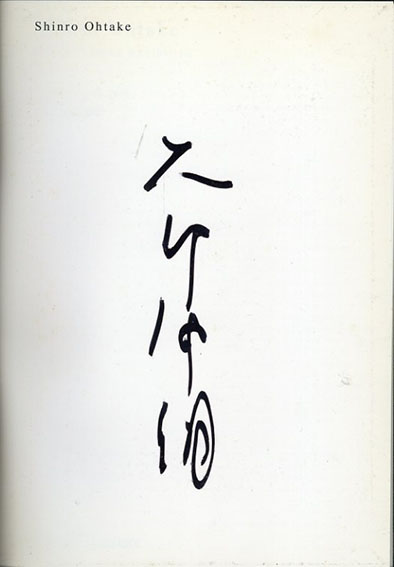 Shinro Ohtake
大竹伸朗